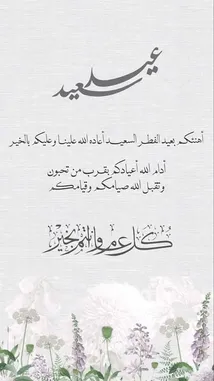 عيد سعيد
أهنئكم بعيد الفطر السعيد أعاده الله علينا وعليكم بالخير
أدام الله أعيادكم بقرب من تحبون
وتقبل الله صيامكم وقيامكم
كل عام وانتم بخير